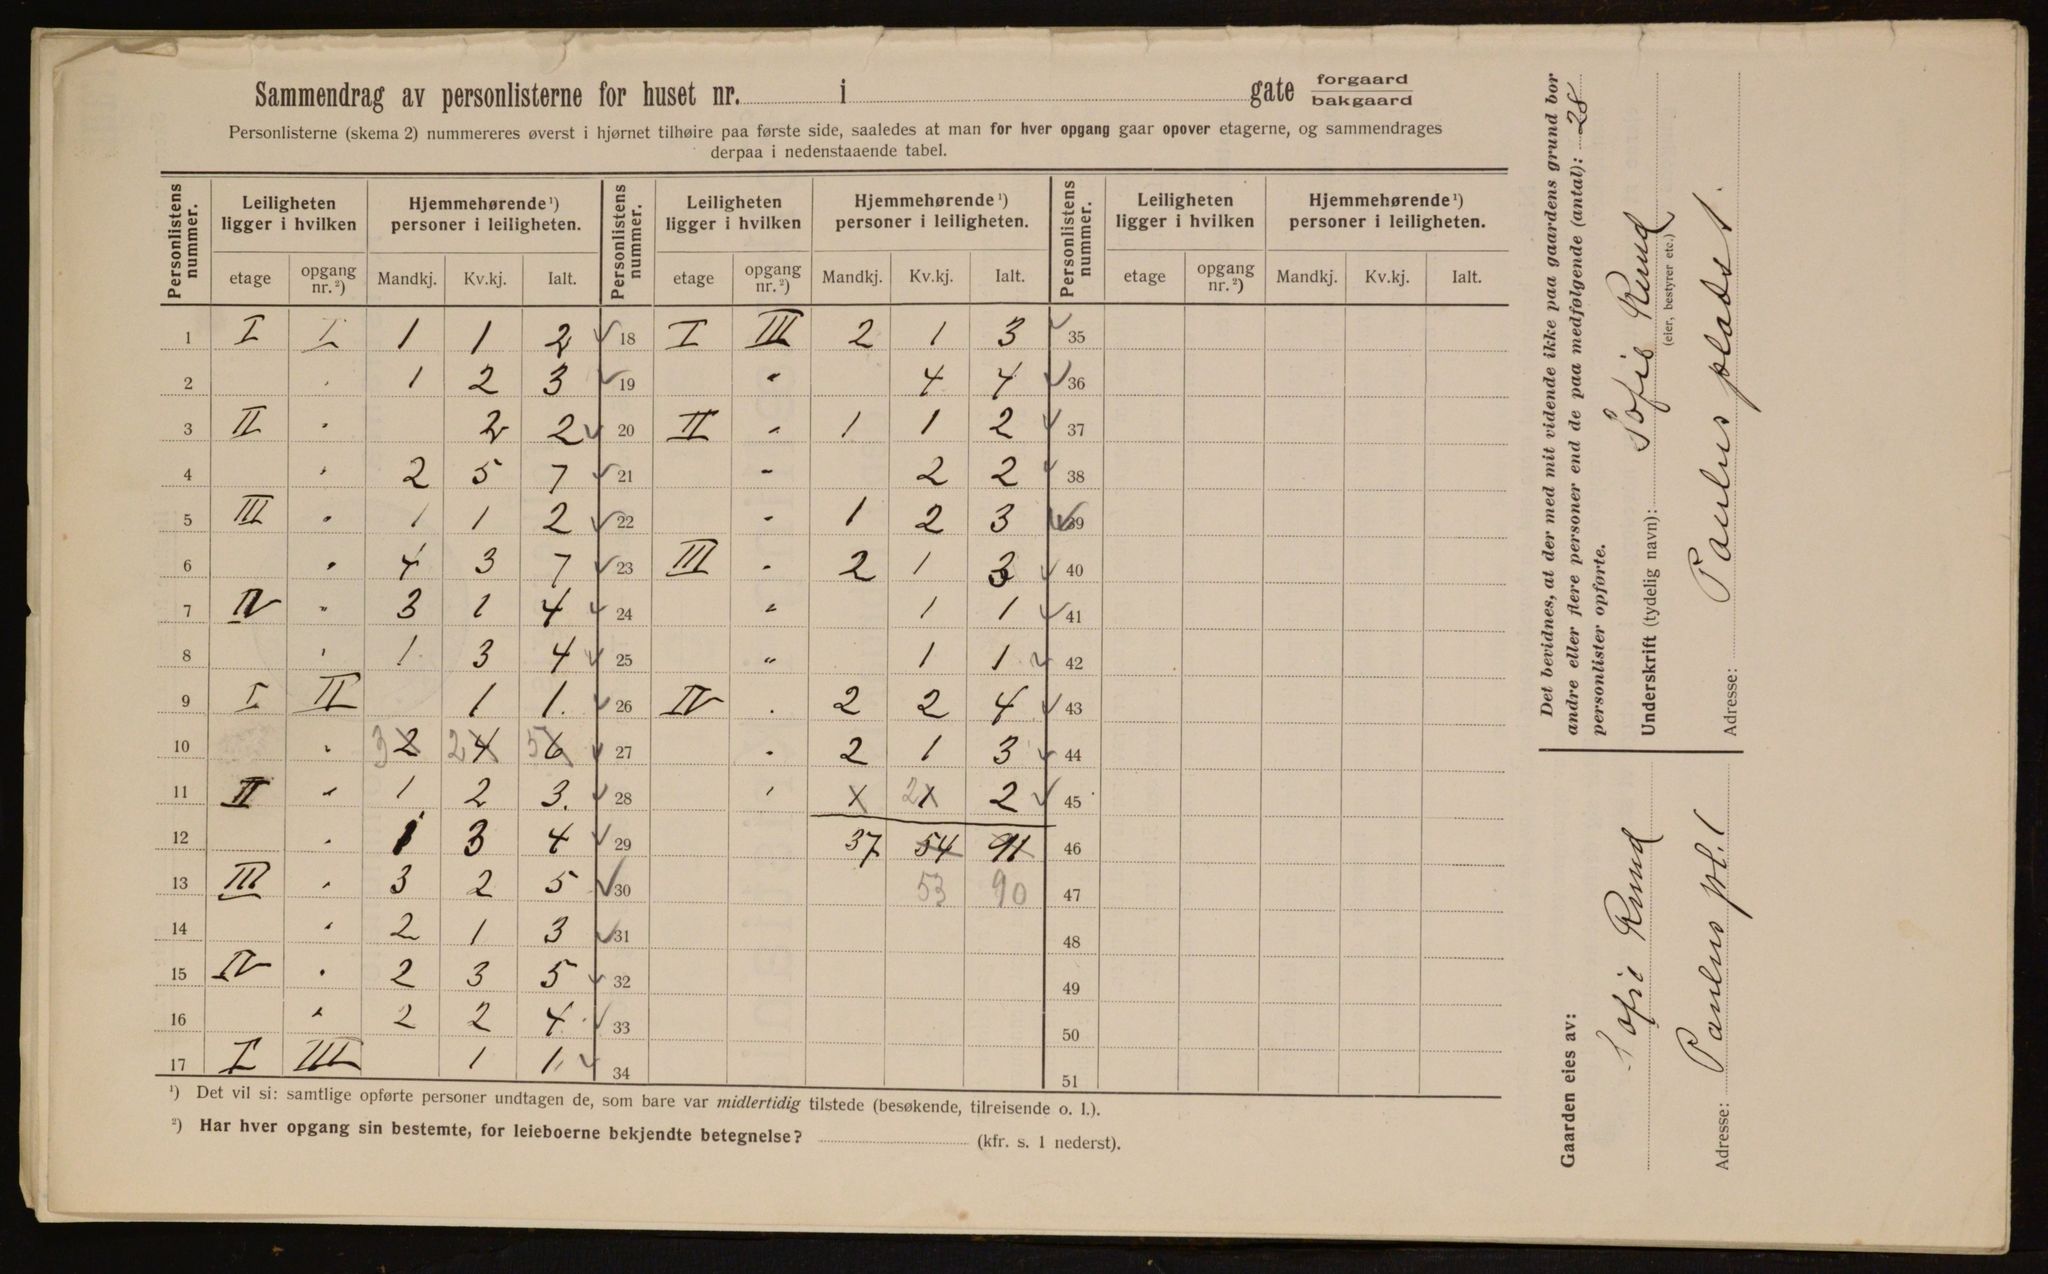 Sammendrag av personlisterne for huset nr. i gate forgaard bakgaard
Personlisterne (skema 2) nummereres øverst i hjørnet tilhøire paa første side, saaledes at man for hver opgang gaar opover etagerne, og sammendrages
derpaa i nedenstaaende tabel.
Personlistens nummer. Leiligheten ligger i hvilken Hjemmehørende ¹) personer i leiligheten. Personlistens nummer. Leiligheten ligger i hvilken Hjemmehørende ¹) personer i leiligheten. Personlistens nummer. Leiligheten ligger i hvilken Hjemmehørende ¹) personer i leiligheten.
etage opgang nr. ²) Mandkj. Kv.kj. Ialt. etage opgang nr. ²) Mandkj. Kv.kj. Ialt. etage opgang nr. ²) Mandkj. Kv.kj. Ialt.
1 I I 1 1 2 ✓ 18 I III 2 1 3 ✓ 35
2 " 1 2 3 ✓ 19 " 4 4 ✓ 36
3 II " 2 2 ✓ 20 II " 1 1 2 ✓ 37
4 " 2 5 7 ✓ 21 " 2 2 ✓ 38
5 III " 1 1 2 ✓ 22 " 1 2 3 ✓ 39
6 " 4 3 7 ✓ 23 III " 2 1 3 ✓ 40
7 IV " 3 1 4 ✓ 24 " 1 1 ✓ 41
8 " 1 3 4 ✓ 25 " 1 1 ✓ 42
9 I II 1 1. ✓ 26 IV " 2 2 4 ✓ 43
10 " 3 2 2 4 5 6 ✓ 27 " 2 1 3 ✓ 44
11 II " 1 2 3. ✓ 28 " 1 2 1 2 ✓ 45
12 " 1 3 4 ✓ 29 37 54 91 46
13 III " 3 2 5 ✓ 30 53 90 47
14 " 2 1 3 ✓ 31 48
15 IV " 2 3 5 ✓ 32 49
16 " 2 2 4 ✓ 33 50
17 I III 1 1 ✓ 34 51
¹) Det vil si: samtlige opførte personer undtagen de, som bare var midlertidig tilstede (besøkende, tilreisende o. l.).
²) Har hver opgang sin bestemte, for leieboerne bekjendte betegnelse? (kfr. s. 1 nederst).
Det bevidnes, at der med mit vidende ikke paa gaardens grund bor
andre eller flere personer end de paa medfølgende (antal): 28
personlister opførte.
Underskrift (tydelig navn): Sofie Ruud
(eier, bestyrer etc.)
Adresse: Paulus plads 1.
Gaarden eies av:
Sofie Ruud
Adresse: Paulus pl. 1